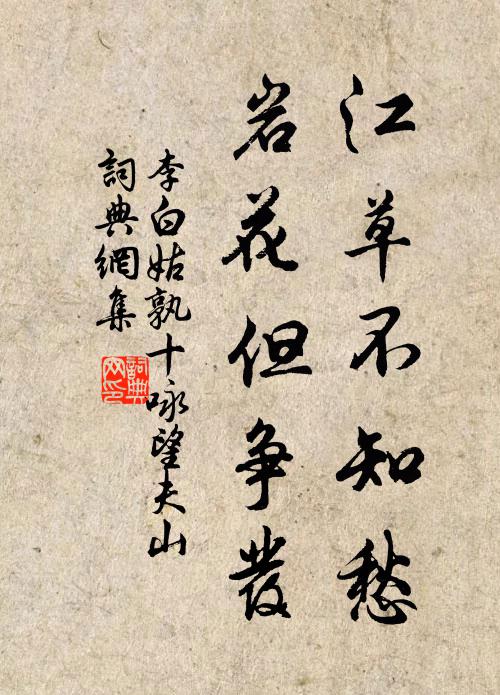 江草不知愁
岩花但争發
李白姑孰十咏望夫山
詞典網集
詞典網印